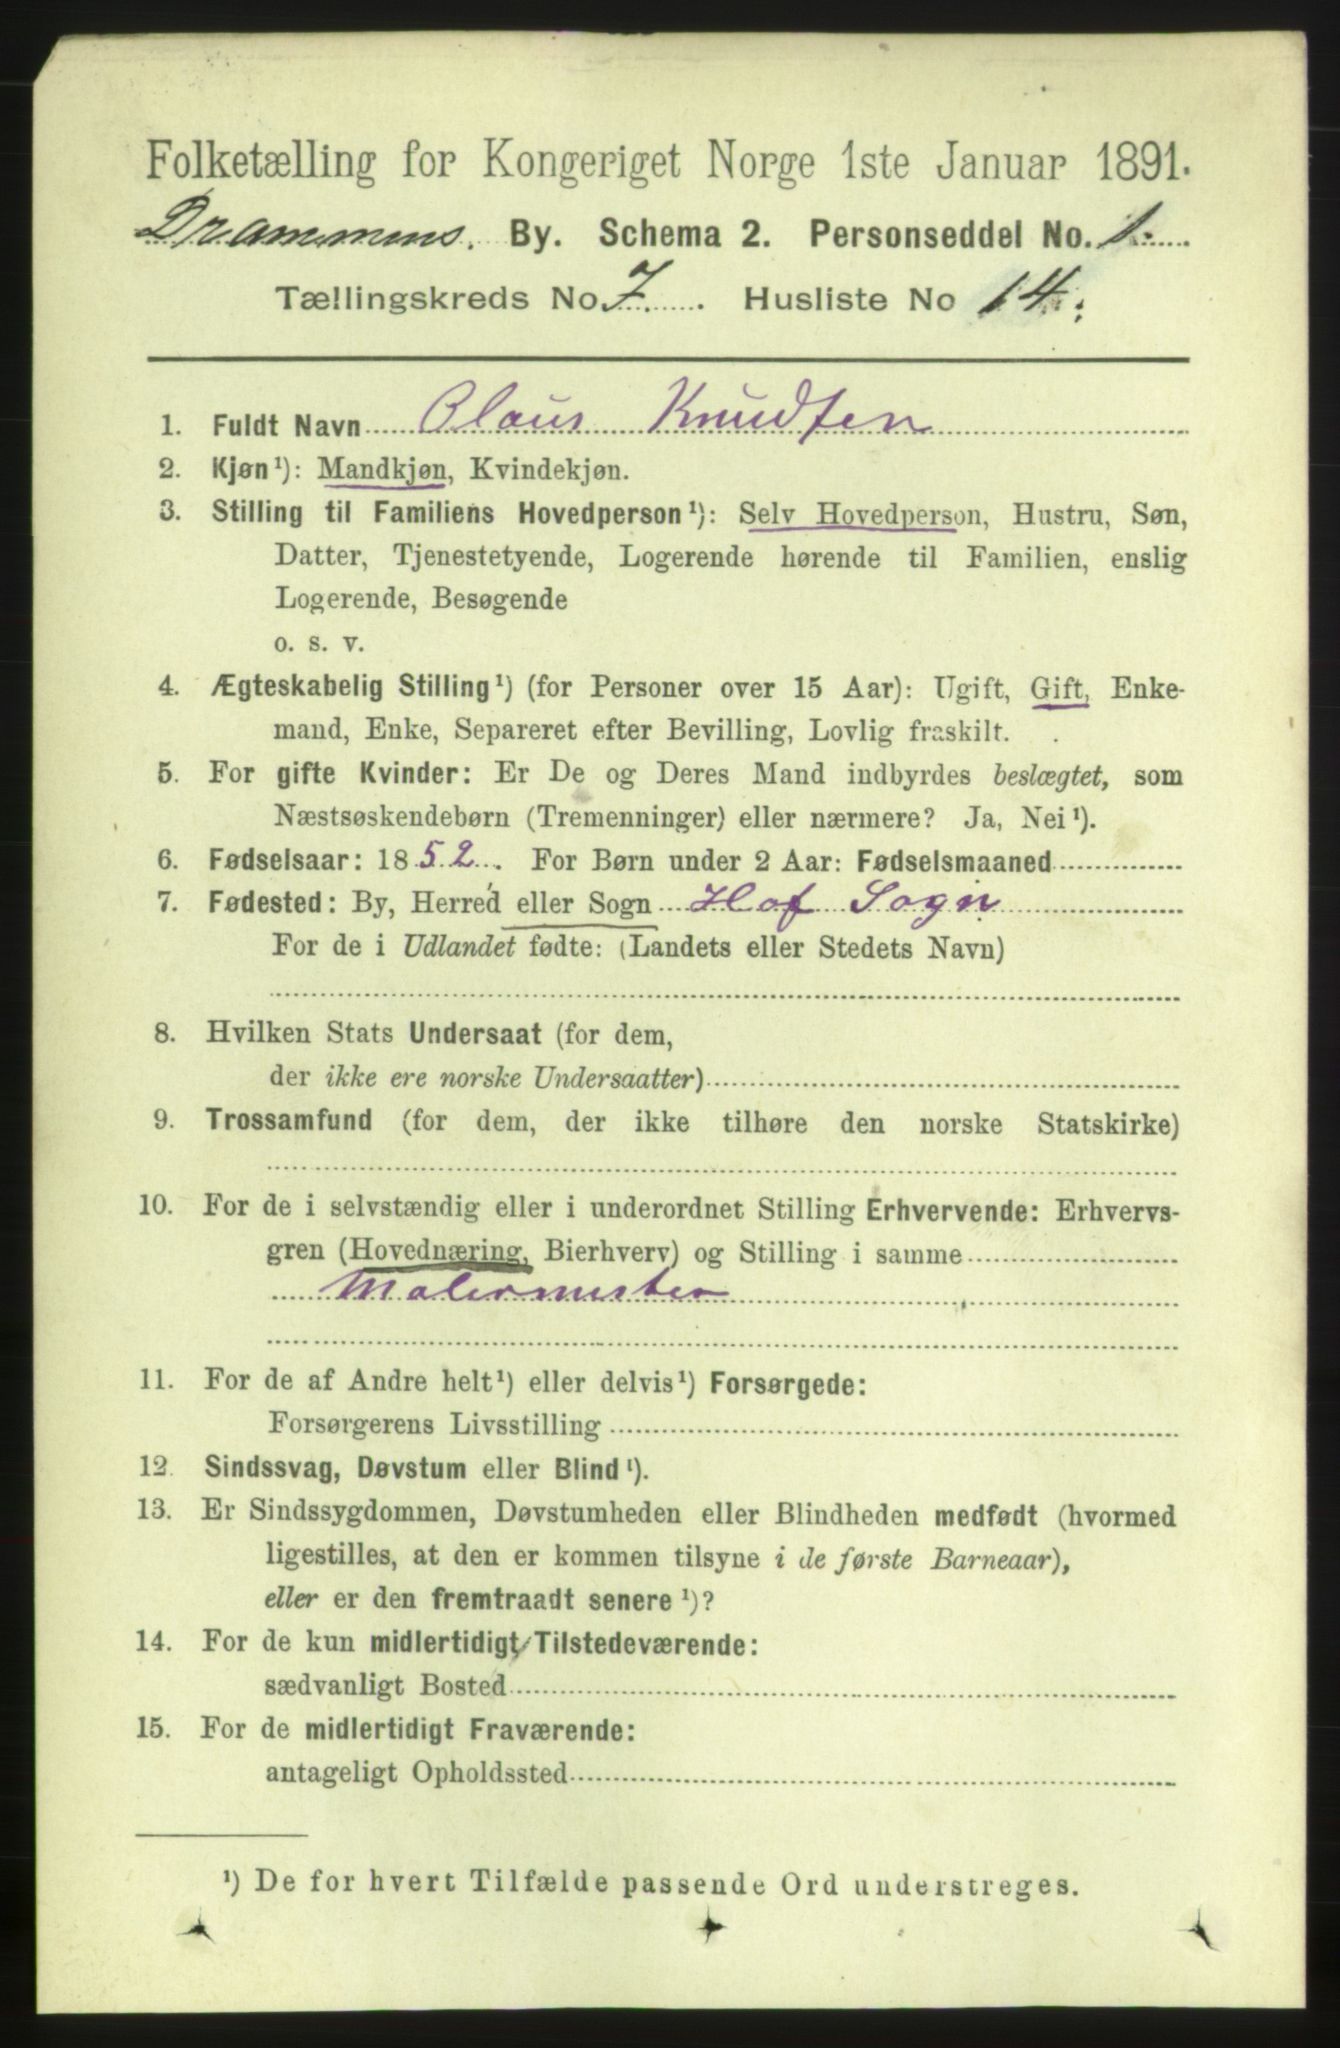 Folketælling for Kongeriget Norge 1ste Januar 1891.
Drammens. By. Schema 2. Personseddel No. 1.
Tællingskreds No 7. Husliste No 14.
1. Fuldt Navn Olaus Knudsen
2. Kjøn¹): Mandkjøn, Kvindekjøn.
3. Stilling til Familiens Hovedperson¹): Selv Hovedperson, Hustru, Søn,
Datter, Tjenestetyende, Logerende hørende til Familien, enslig
Logerende, Besøgende
o. s. v.
4. Ægteskabelig Stilling¹) (for Personer over 15 Aar): Ugift, Gift, Enke-
mand, Enke, Separeret efter Bevilling, Lovlig fraskilt.
5. For gifte Kvinder: Er De og Deres Mand indbyrdes beslægtet, som
Næstsøskendebørn (Tremenninger) eller nærmere? Ja, Nei¹).
6. Fødselsaar: 1852. For Børn under 2 Aar: Fødselsmaaned
7. Fødested: By, Herred eller Sogn Hof Sogn
For de i Udlandet fødte: (Landets eller Stedets Navn)
8. Hvilken Stats Undersaat (for dem,
der ikke ere norske Undersaatter)
9. Trossamfund (for dem, der ikke tilhøre den norske Statskirke)
10. For de i selvstændig eller i underordnet Stilling Erhvervende: Erhvervs-
gren (Hovednæring, Bierhverv) og Stilling i samme
Malermester
11. For de af Andre helt¹) eller delvis¹) Forsørgede:
Forsørgerens Livsstilling
12. Sindssvag, Døvstum eller Blind¹).
13. Er Sindssygdommen, Døvstumheden eller Blindheden medfødt (hvormed
ligestilles, at den er kommen tilsyne i de første Barneaar),
eller er den fremtraadt senere¹)?
14. For de kun midlertidigt Tilstedeværende:
sædvanligt Bosted
15. For de midlertidigt Fraværende:
antageligt Opholdssted
¹) De for hvert Tilfælde passende Ord understreges.